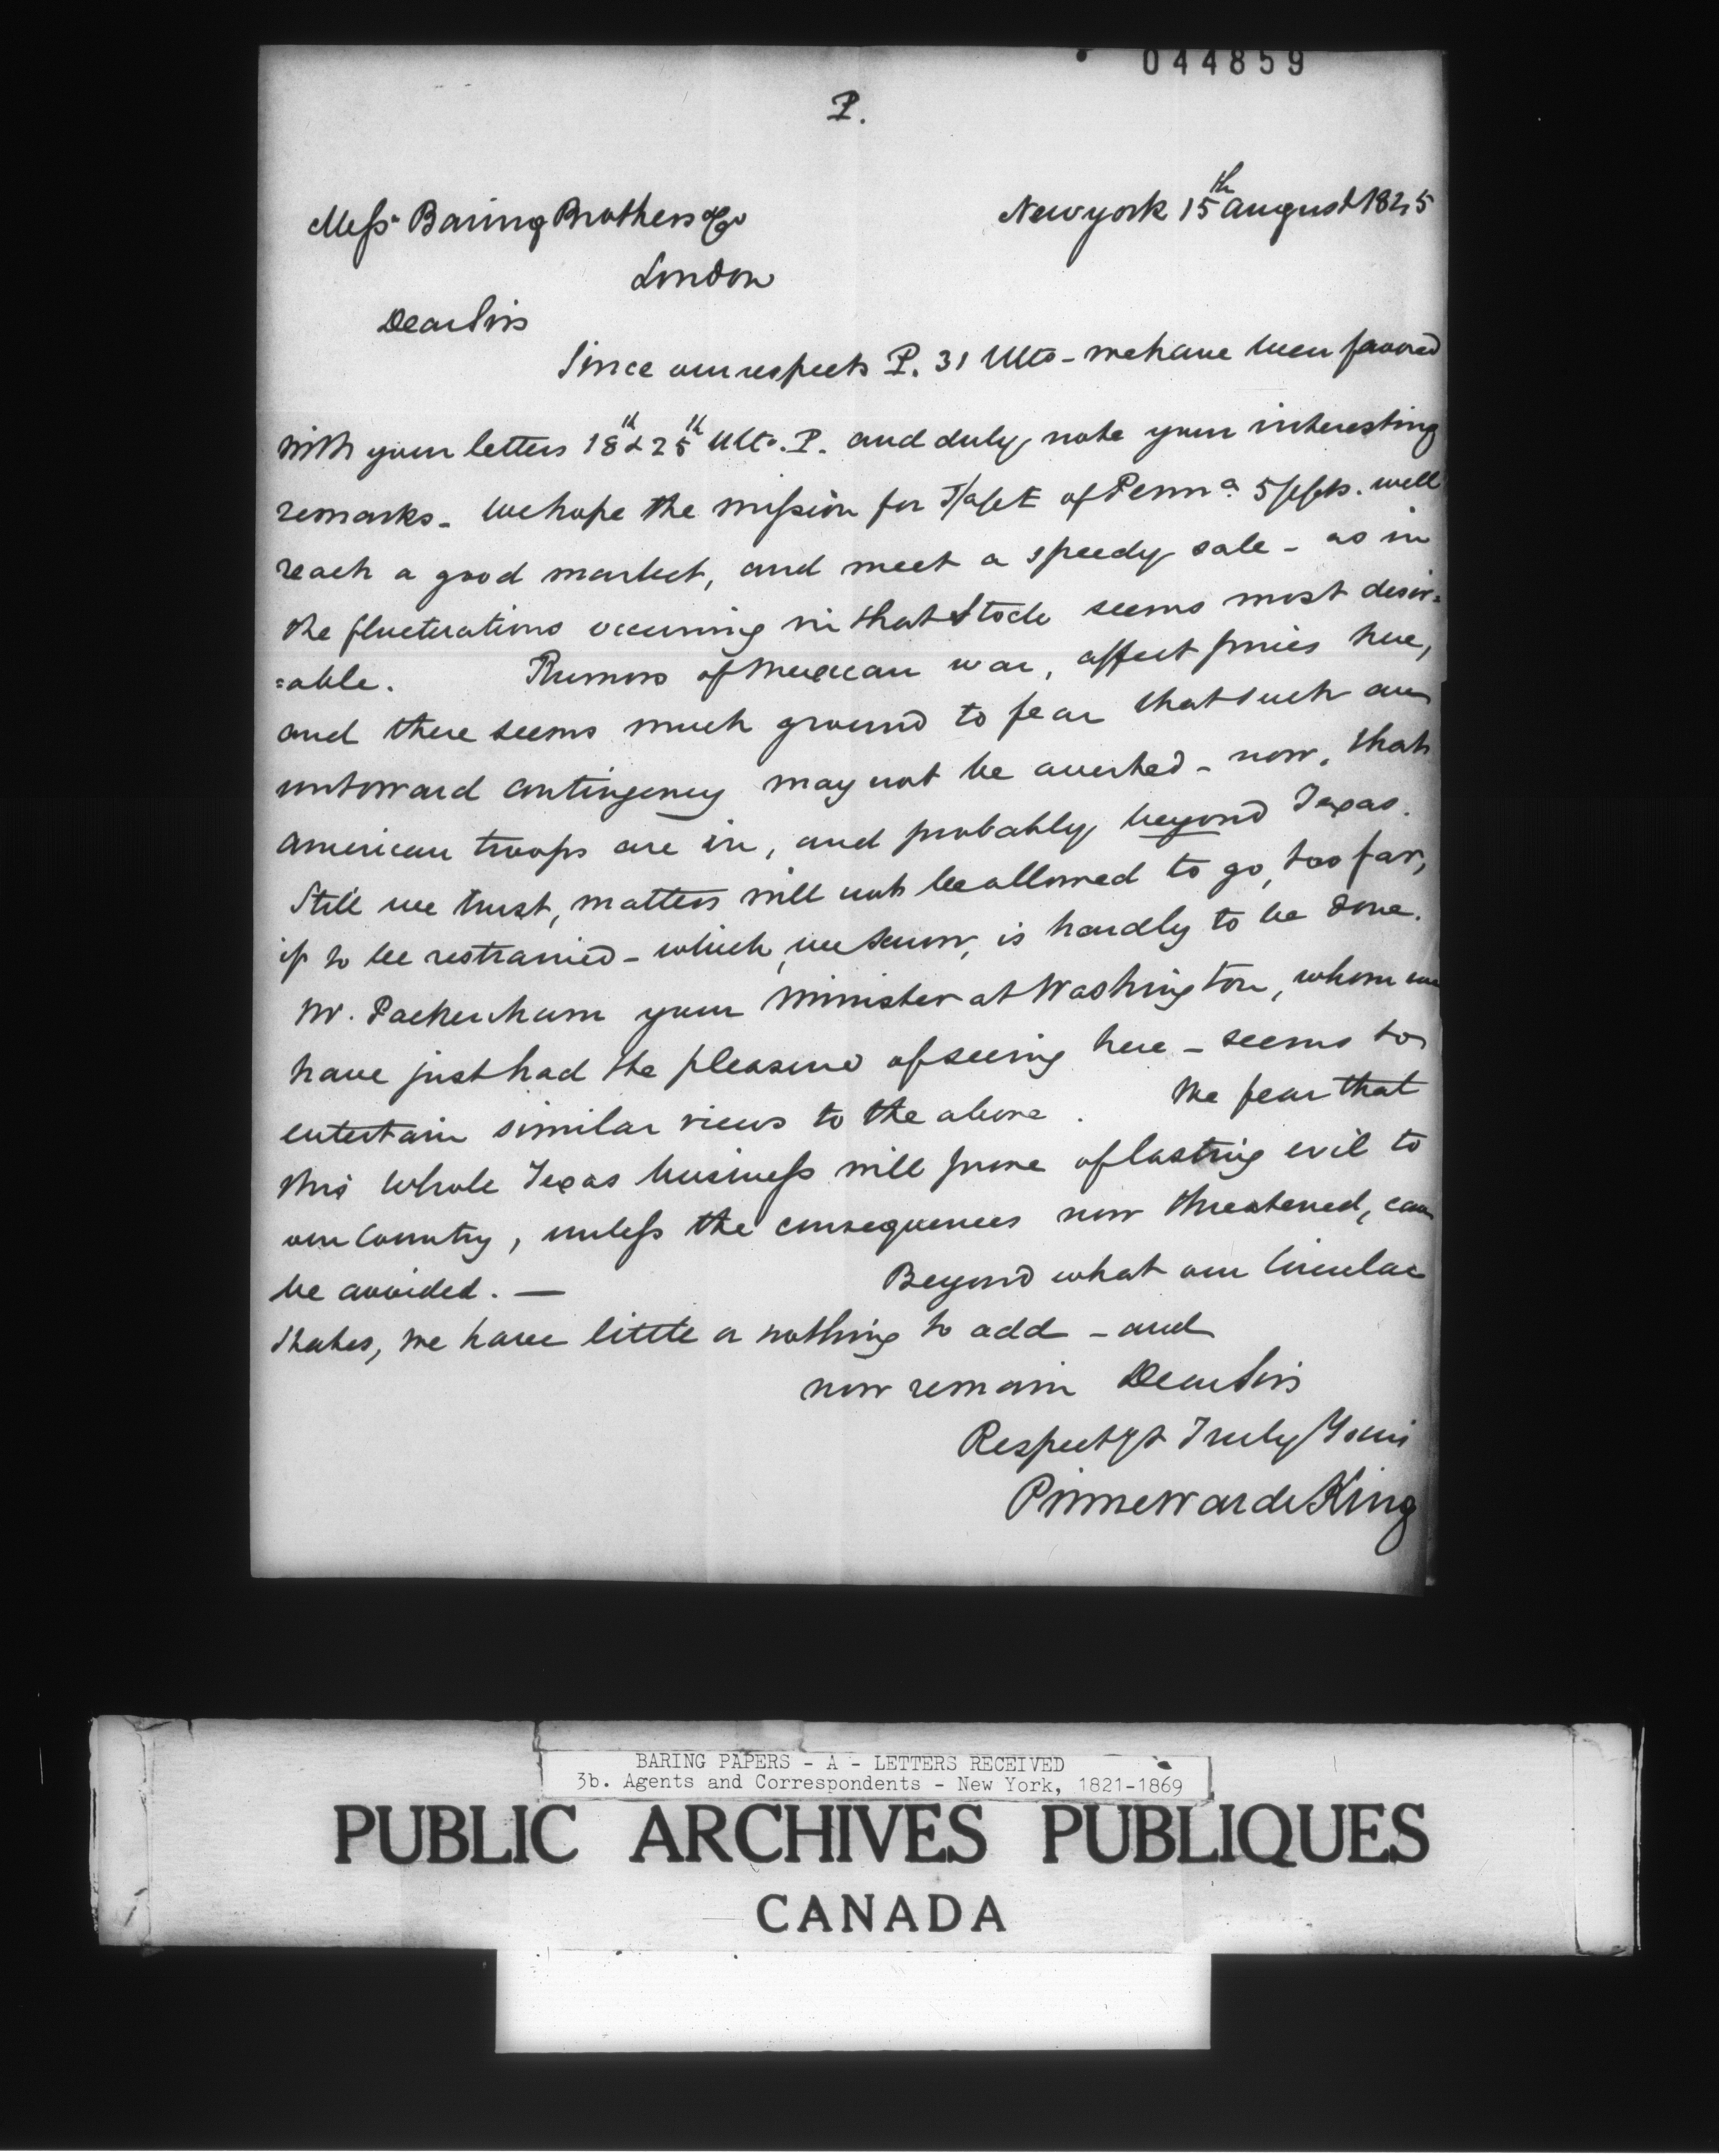 044859
P.
Messrs Baring Brothers & Co
New york 15th August 1845
London
Dear Sirs
Since our respects P. 31 Ulto - we have been favored
with your letters 18th & 25th Ulto. P. and duly note your interesting
remarks - We hope the mission for of Penna. 5 will
reach a good market, and meet a speedy sale - as in
the fluctuations occurring in that Stock seems most desir=
=able. Rumors of Mexican war, affect prices here,
and there seems much ground to fear that such an
untoward contingency may not be averted - now, that
American troops are in, and probably beyond Texas.
Still we trust, matters will not be allowed to go, too far,
if to be restrained - which, we know, is hardly to be done.
Mr. Packenham your Minister at Washington, whom we
have just had the pleasure of seeing here - seems to
entertain similar views to the above. We fear that
this whole Texas business will prove of lasting evil to
our Country, unless the consequences now threatened, can
be avoided. —
Beyond what our Circular
States, we have little or nothing to add - and
now remain Dear Sirs
Respecty & Truly Yours
Prime Ward & King
BARING PAPERS - A - LETTERS RECEIVED
3b. Agents and Correspondents - New York, 1821-1869
PUBLIC ARCHIVES PUBLIQUES
CANADA